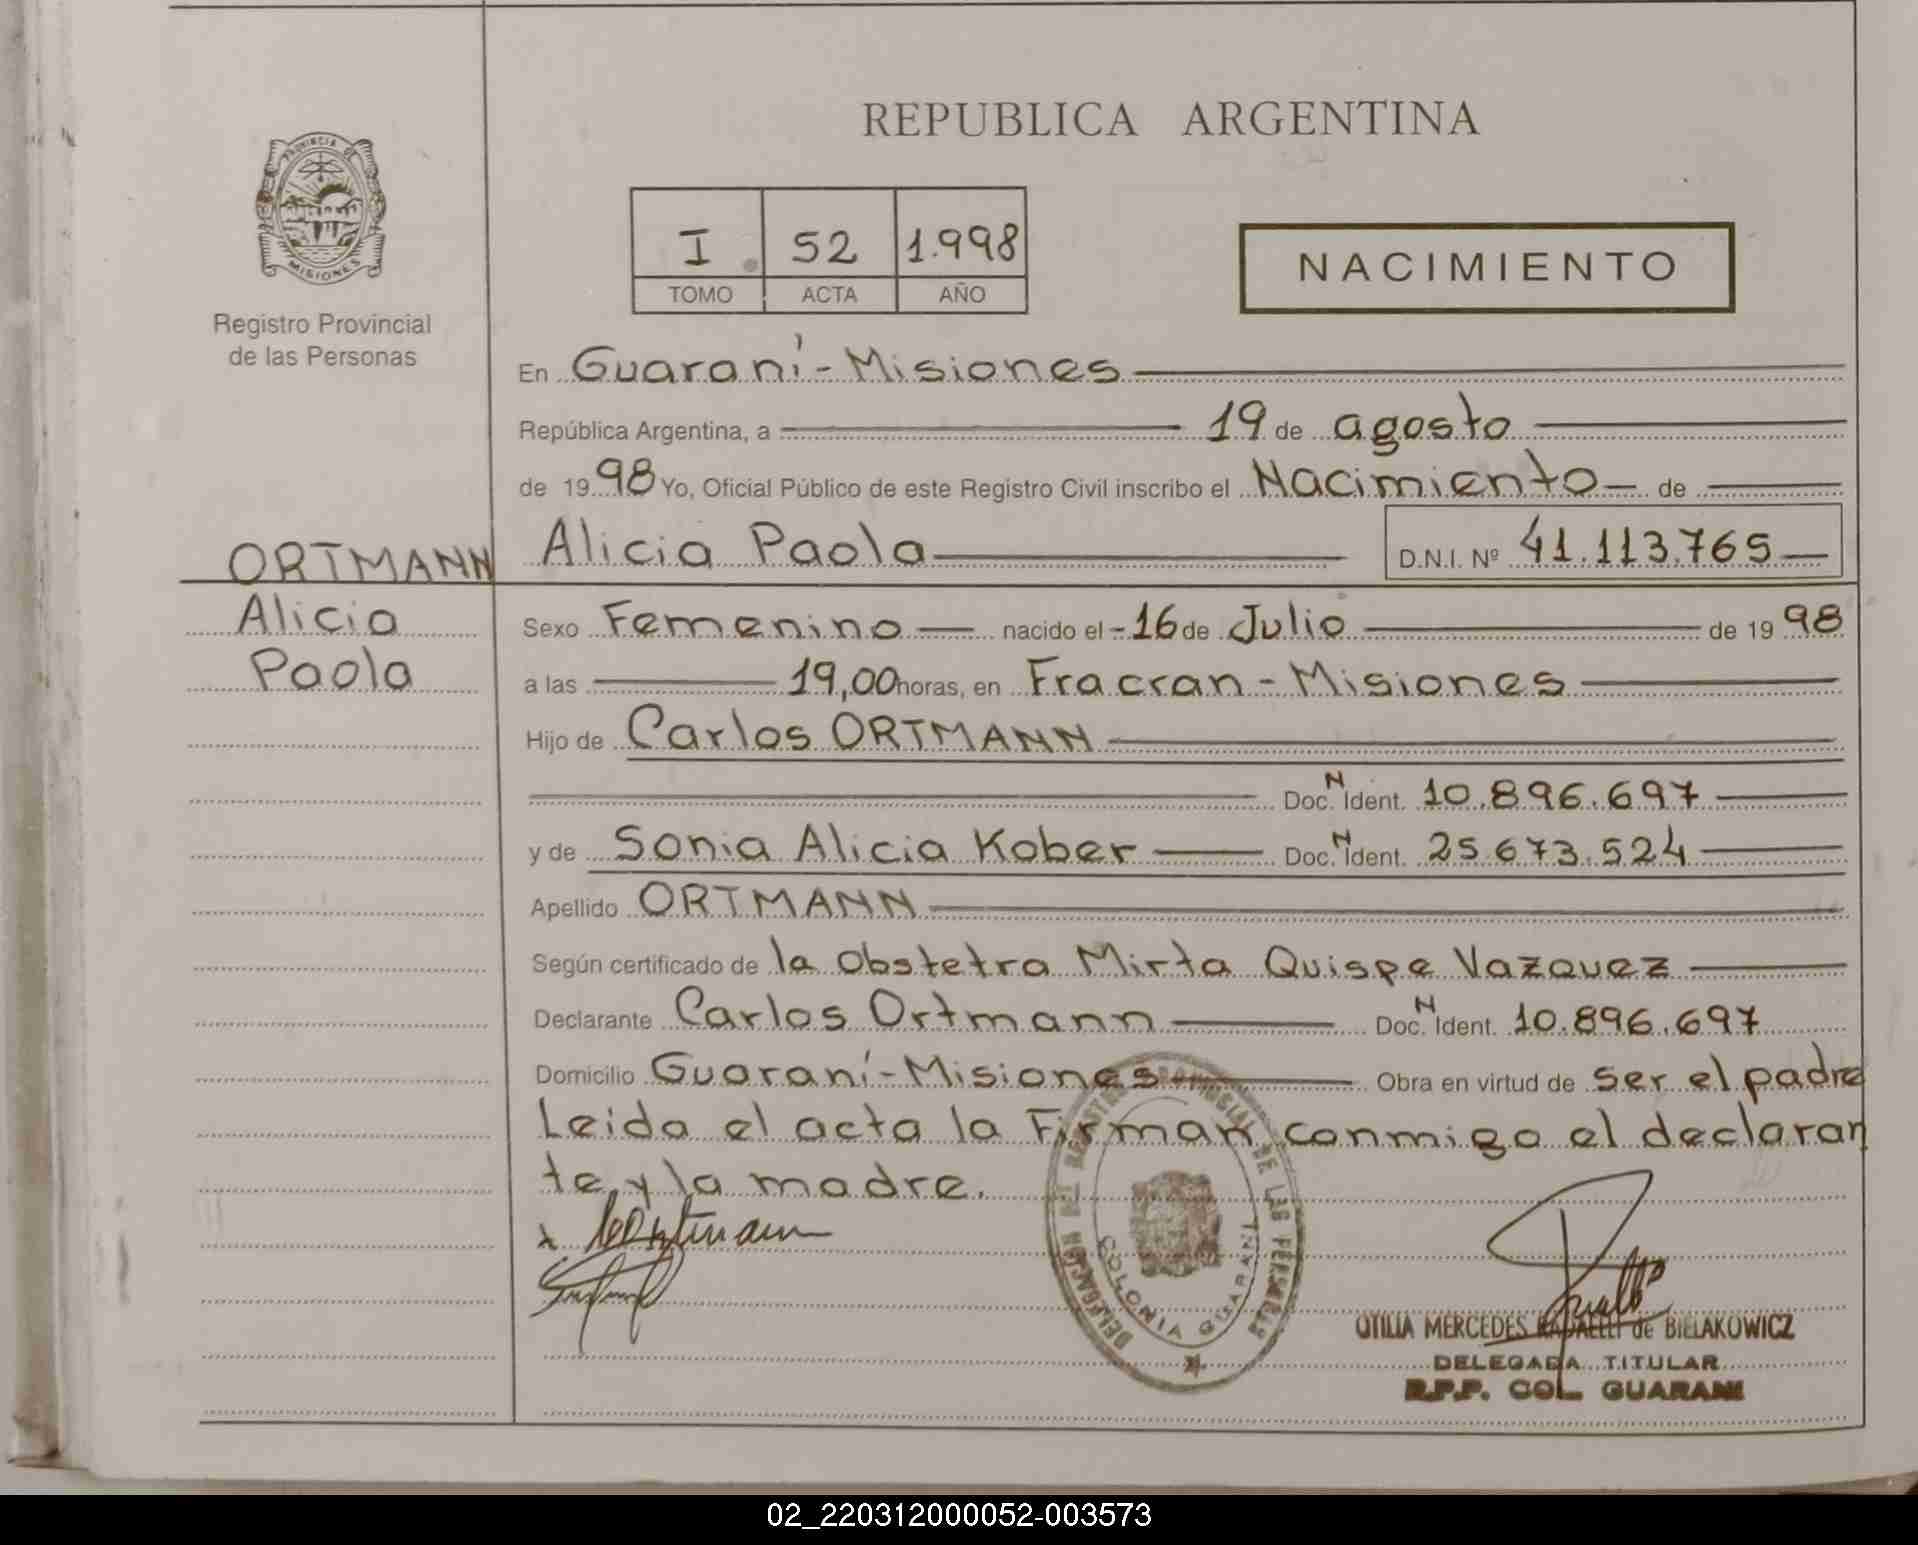 REPUBLICA ARGENTINA
PROVINCIA DE
MISIONES
Registro Provincial
de las Personas
I 52 1.998
TOMO ACTA AÑO
NACIMIENTO
En Guaraní - Misiones
República Argentina, a 19 de agosto
de 1998 Yo, Oficial Público de este Registro Civil inscribo el Nacimiento de
ORTMANN
Alicia
Paola
Alicia Paola D.N.I. Nº 41.113.765
Sexo Femenino nacido el - 16 de Julio de 1998
a las 19,00 horas, en Fracran - Misiones
Hijo de Carlos ORTMANN
Doc. N Ident. 10.896.697
y de Sonia Alicia Kober Doc. N Ident. 25.673.524
Apellido ORTMANN
Según certificado de la Obstetra Mirta Quispe Vazquez
Declarante Carlos Ortmann Doc. N Ident. 10.896.697
Domicilio Guaraní - Misiones Obra en virtud de ser el padre
Leida el acta la Firman conmigo el declaran
te y la madre.
DELEGACION DEL REGISTRO PROVINCIAL DE LAS PERSONAS
COLONIA GUARANI
OTILIA MERCEDES RAFAELLI de BIELAKOWICZ
DELEGADA TITULAR
R.P.P. COL. GUARANI
02_220312000052-003573